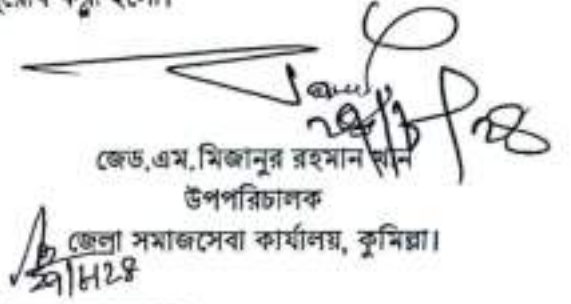 করা হলো।
জেড.এম.মিজানুর রহমান খান
উপপরিচালক
জেলা সমাজসেবা কার্যালয়, কুমিল্লা।